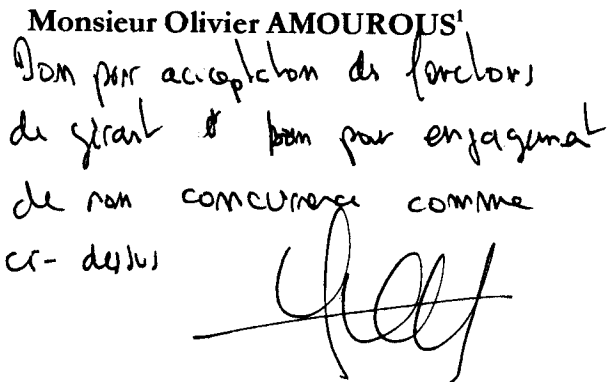 Monsieur Olivier AMOUROUS¹
Bon pour acceptation des fonctions
de gérant & bon pour engagement
de non concurrence comme
ci-dessus